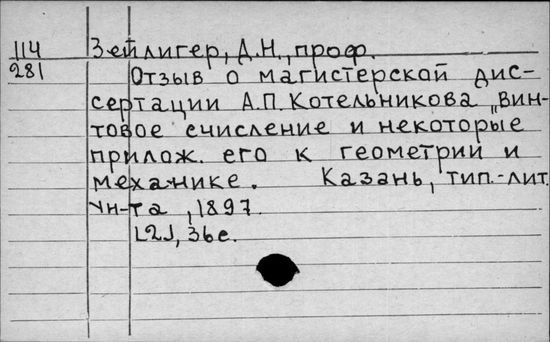 114 Зейлигер, Д.Н., проф.
281 Отзыв о магистерской дис-
сертации А.П. Котельникова „Вин-
товое счисление и некоторые
прилож. его к геометрии и
механике. Казань, тип.-лит.
Ун-та, 1897.
[2], 36 с.